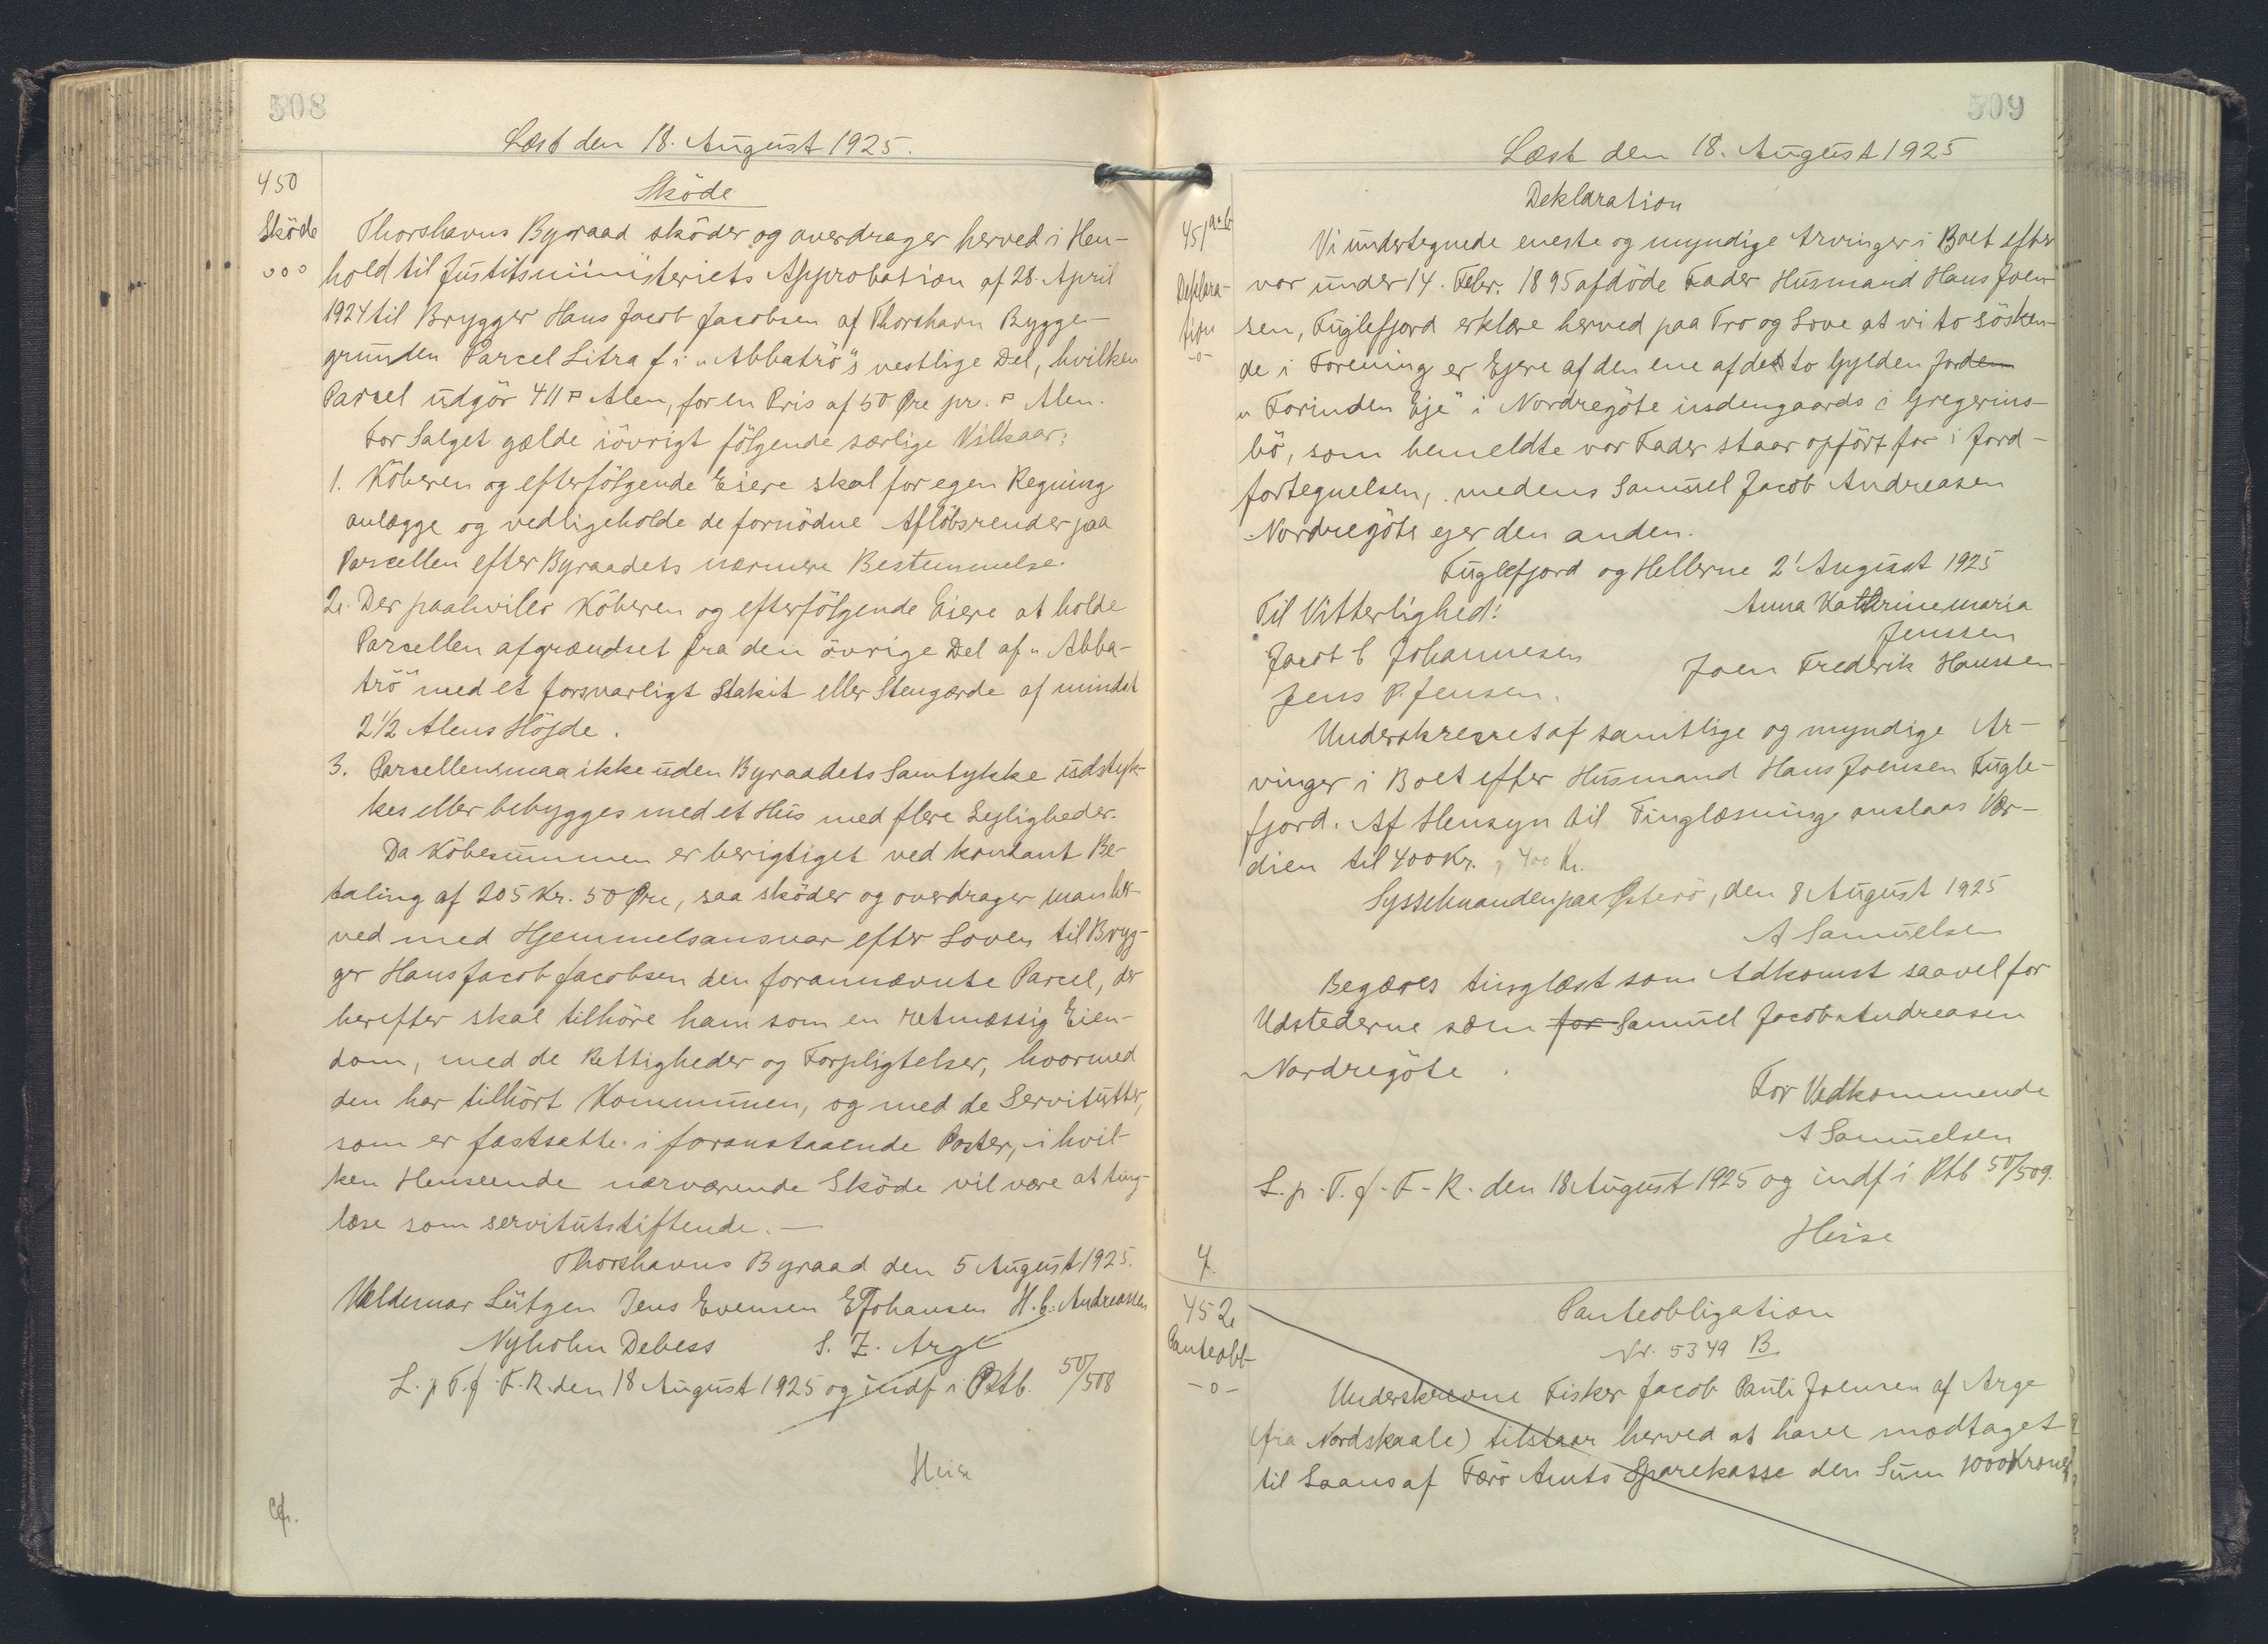 508
Læst den 18. August 1925.
450
Sköde
ooo
Sköde
Thorshavns Byraad sköder og overdrager herved i Hen-
hold til Justitsministeriets Approbation af 28. April
1924 til Brygger Hans Jacob Jacobsen af Thorshavn Bygge-
grunden Parcel Litra f i "Abbatrö"s vestlige Del, hvilken
Parcel udgör 411 □ Alen, for en Pris af 50 Øre pr. □ Alen.
For Salget gælde iövrigt fölgende særlige Vilkaar:
1. Köberen og efterfölgende Eiere skal for egen Regning
anlægge og vedligeholde de fornödne Aflöbsrender paa
Parcellen efter Byraadets nærmere Bestemmelse.
2. Der paahviler Köberen og efterfölgende Eiere at holde
Parcellen afgrændset fra den övrige Del af "Abba-
trö" med et forsvarligt Stakit eller Stengærde af mindst
2½ Alens Höjde.
3. Parcellen maa ikke uden Byraadets Samtykke udstyk-
kes eller bebygges med et Hus med flere Lejligheder.
Da Köbesummen er berigtiget ved kontant Be-
taling af 205 Kr. 50 Øre, saa sköder og overdrager man her-
ved med Hjemmelsansvar efter Loven til Bryg-
ger Hans Jacob Jacobsen den forannævnte Parcel, der
herefter skal tilhöre ham som en retmæssig Eien-
dom, med de Rettigheder og Forpligtelser, hvormed
den har tilhört Kommunen, og med de Servitutter,
som er fastsatte i foranstaaende Poster, i hvil-
ken Henseende nærværende Sköde vil være at ting-
læse som servitutstiftende. —
Thorshavns Byraad den 5 August 1925.
Valdemar Lützen Jens Evensen E Johansen H. C. Andreasen
Nyholm Debess S. Z. Arge
L. p T. f. F. R. den 18 August 1925 og indf i Ptb. 50/508
Heise
Cf.
509
Læst den 18. August 1925
451 a-b
Deklara-
tion
-o-
Deklaration
Vi undertegnede eneste og myndige Arvinger i Boet efter
vor under 14. Febr. 1895 afdöde Fader Husmand Hans Joen-
sen, Fuglefjord erklære herved paa Tro og Love at vi to Sösken-
de i Forening er Ejere af den ene af de to Gylden Jorden
"Forinden Eje" i Nordregöte indengaards i Gregerins-
bö, som bemeldte vor Fader staar opfört for i Jord-
fortegnelsen, medens Samuel Jacob Andreasen
Nordregöte ejer den anden.
Fuglefjord og Hellerne 2' August 1925
Til Vitterlighed: Anna Kathrinemaria
Jenssen
Jacob C Johannesen Joen Frederik Hanssen
Jens P. Jensen.
Underskrevet af samtlige og myndige Ar-
vinger i Boet efter Husmand Hans Joensen Fugle-
fjord. Af Hensyn til Tinglæsning anslaas Vær-
dien til 400 Kr. 400 Kr.
Sysselmanden paa Østerö, den 8 August 1925
A Samuelsen
Begæres tinglæst som Adkomst saavel for
Udstederne som for Samuel Jacob Andreasen
Nordregöte.
For Vedkommende
A Samuelsen
L. p. T. f. F-R. den 18 August 1925 og indf i Ptb 50/509.
Heise
452
Panteobl-
-o-
Panteobligation
Nr. 5349 B.
Underskrevne Fisker Jacob Pauli Joensen af Arge
(fra Nordskaale) tilstaar herved at have modtaget
til Laans af Færö Amts Sparekasse den Sum 1000 Kroner